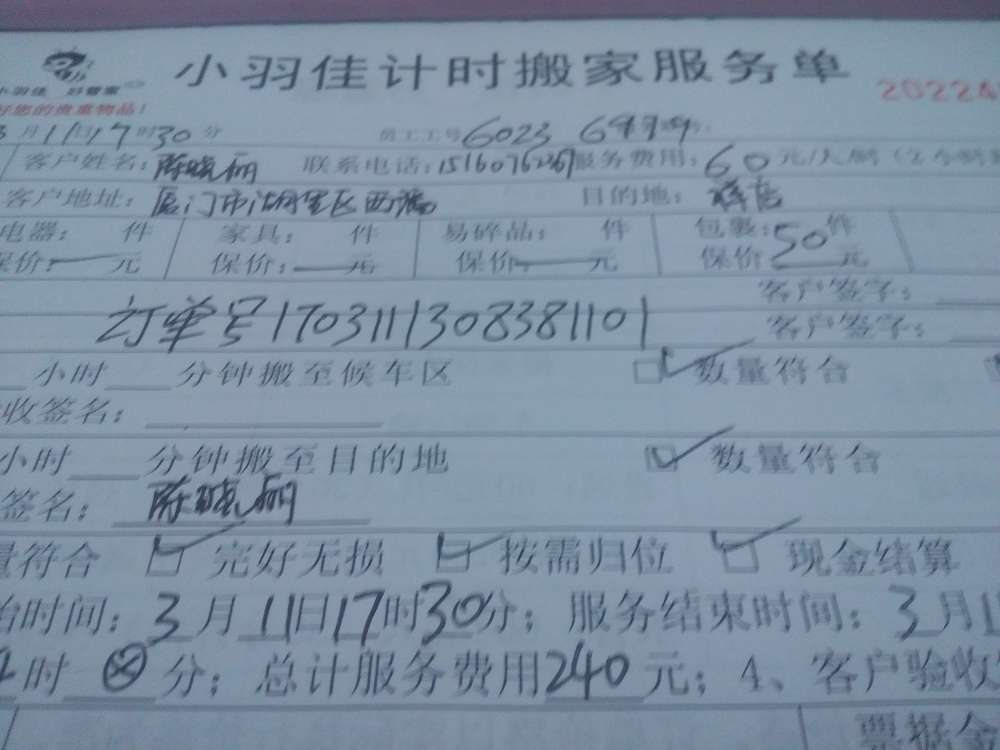 小羽佳计时搬家服务单
小羽佳 好管家
好您的贵重物品!
20224
3月11日17时30分 员工工号6023
客户姓名:陈晓丽 联系电话:15160762367服务费用:60元/人/时(2小时
客户地址:厦门市湖里区西 目的地:祥店
电器: 件 家具: 件 易碎品: 件 包裹:50件
保价:—元 保价:—元 保价:—元 保价: 元
客户签字:
订单号1703111308381101
客户签字:
小时 分钟搬至候车区 数量符合
收签名:
小时 分钟搬至目的地 数量符合
签名:陈晓丽
量符合 完好无损 按需归位 现金结算
始时间:3月11日17时30分;服务结束时间:3月1
时 分;总计服务费用240元;4、客户验收
票据金